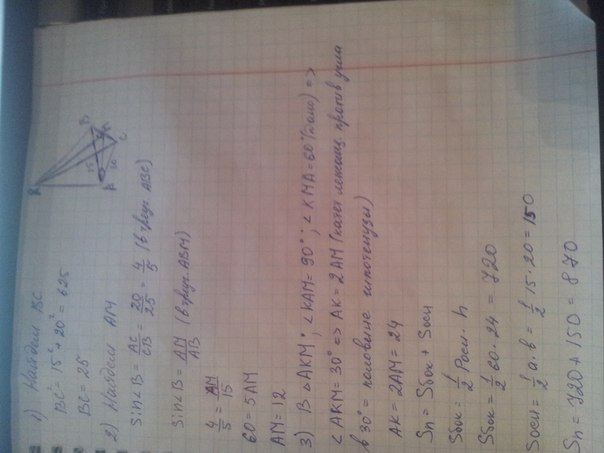 1) Найдем BC
BC² = 15² + 20² = 625
BC = 25
2) Найдем AM
Sin∠B = AC/CB = 20/25 = 4/5 (в треуг. ABC)
Sin∠B = AM/AB (в треуг. ABM)
4/5 = AM/15
60 = 5AM
AM = 12
3) В △AKM: ∠KAM = 90°; ∠KMA = 60° (дано) =>
∠AKM = 30° => AK = 2AM (катет лежащ. против угла
в 30° = половине гипотенузы)
AK = 2AM = 24
Sп = Sбок + Sосн
Sбок = 1/2 Pосн · h
Sбок = 1/2 60 · 24 = 720
Sосн = 1/2 a · b = 1/2 15 · 20 = 150
Sп = 720 + 150 = 870
K
B
M
C
A
15
20